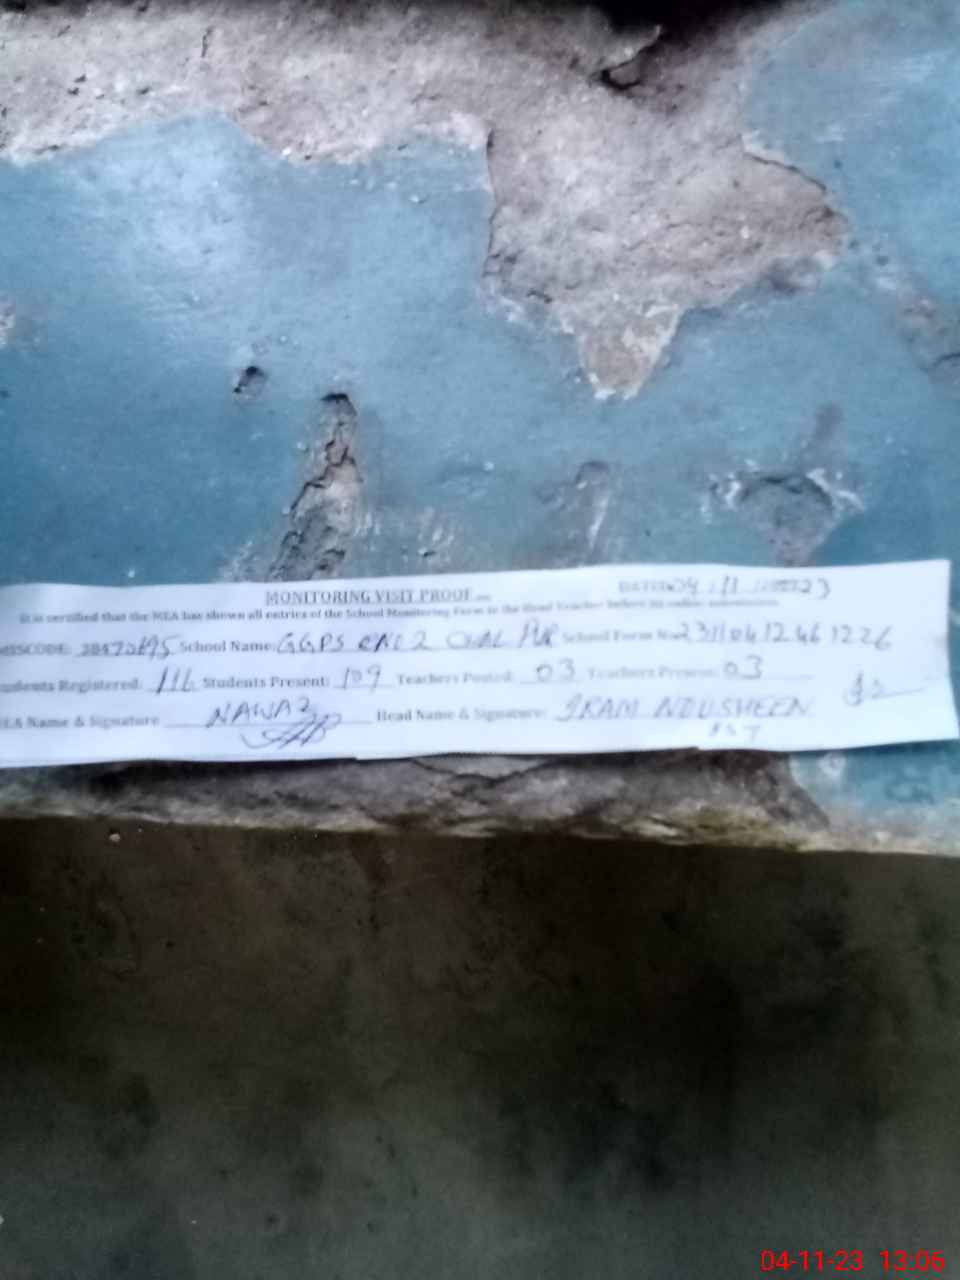 MONITORING VISIT PROOF DATED 04 / 11 /2023
It is certified that the MEA has shown all entries of the School Monitoring Form to the Head Teacher before its online submission.
School Name: GGPS School Form No 23110412461226
Students Registered: 116 Students Present: 109 Teachers Posted: 03 Teachers Present: 03
MEA Name & Signature NAWAZ Head Name & Signature: IRAM NOUSHEEN
PST
04-11-23 13:06